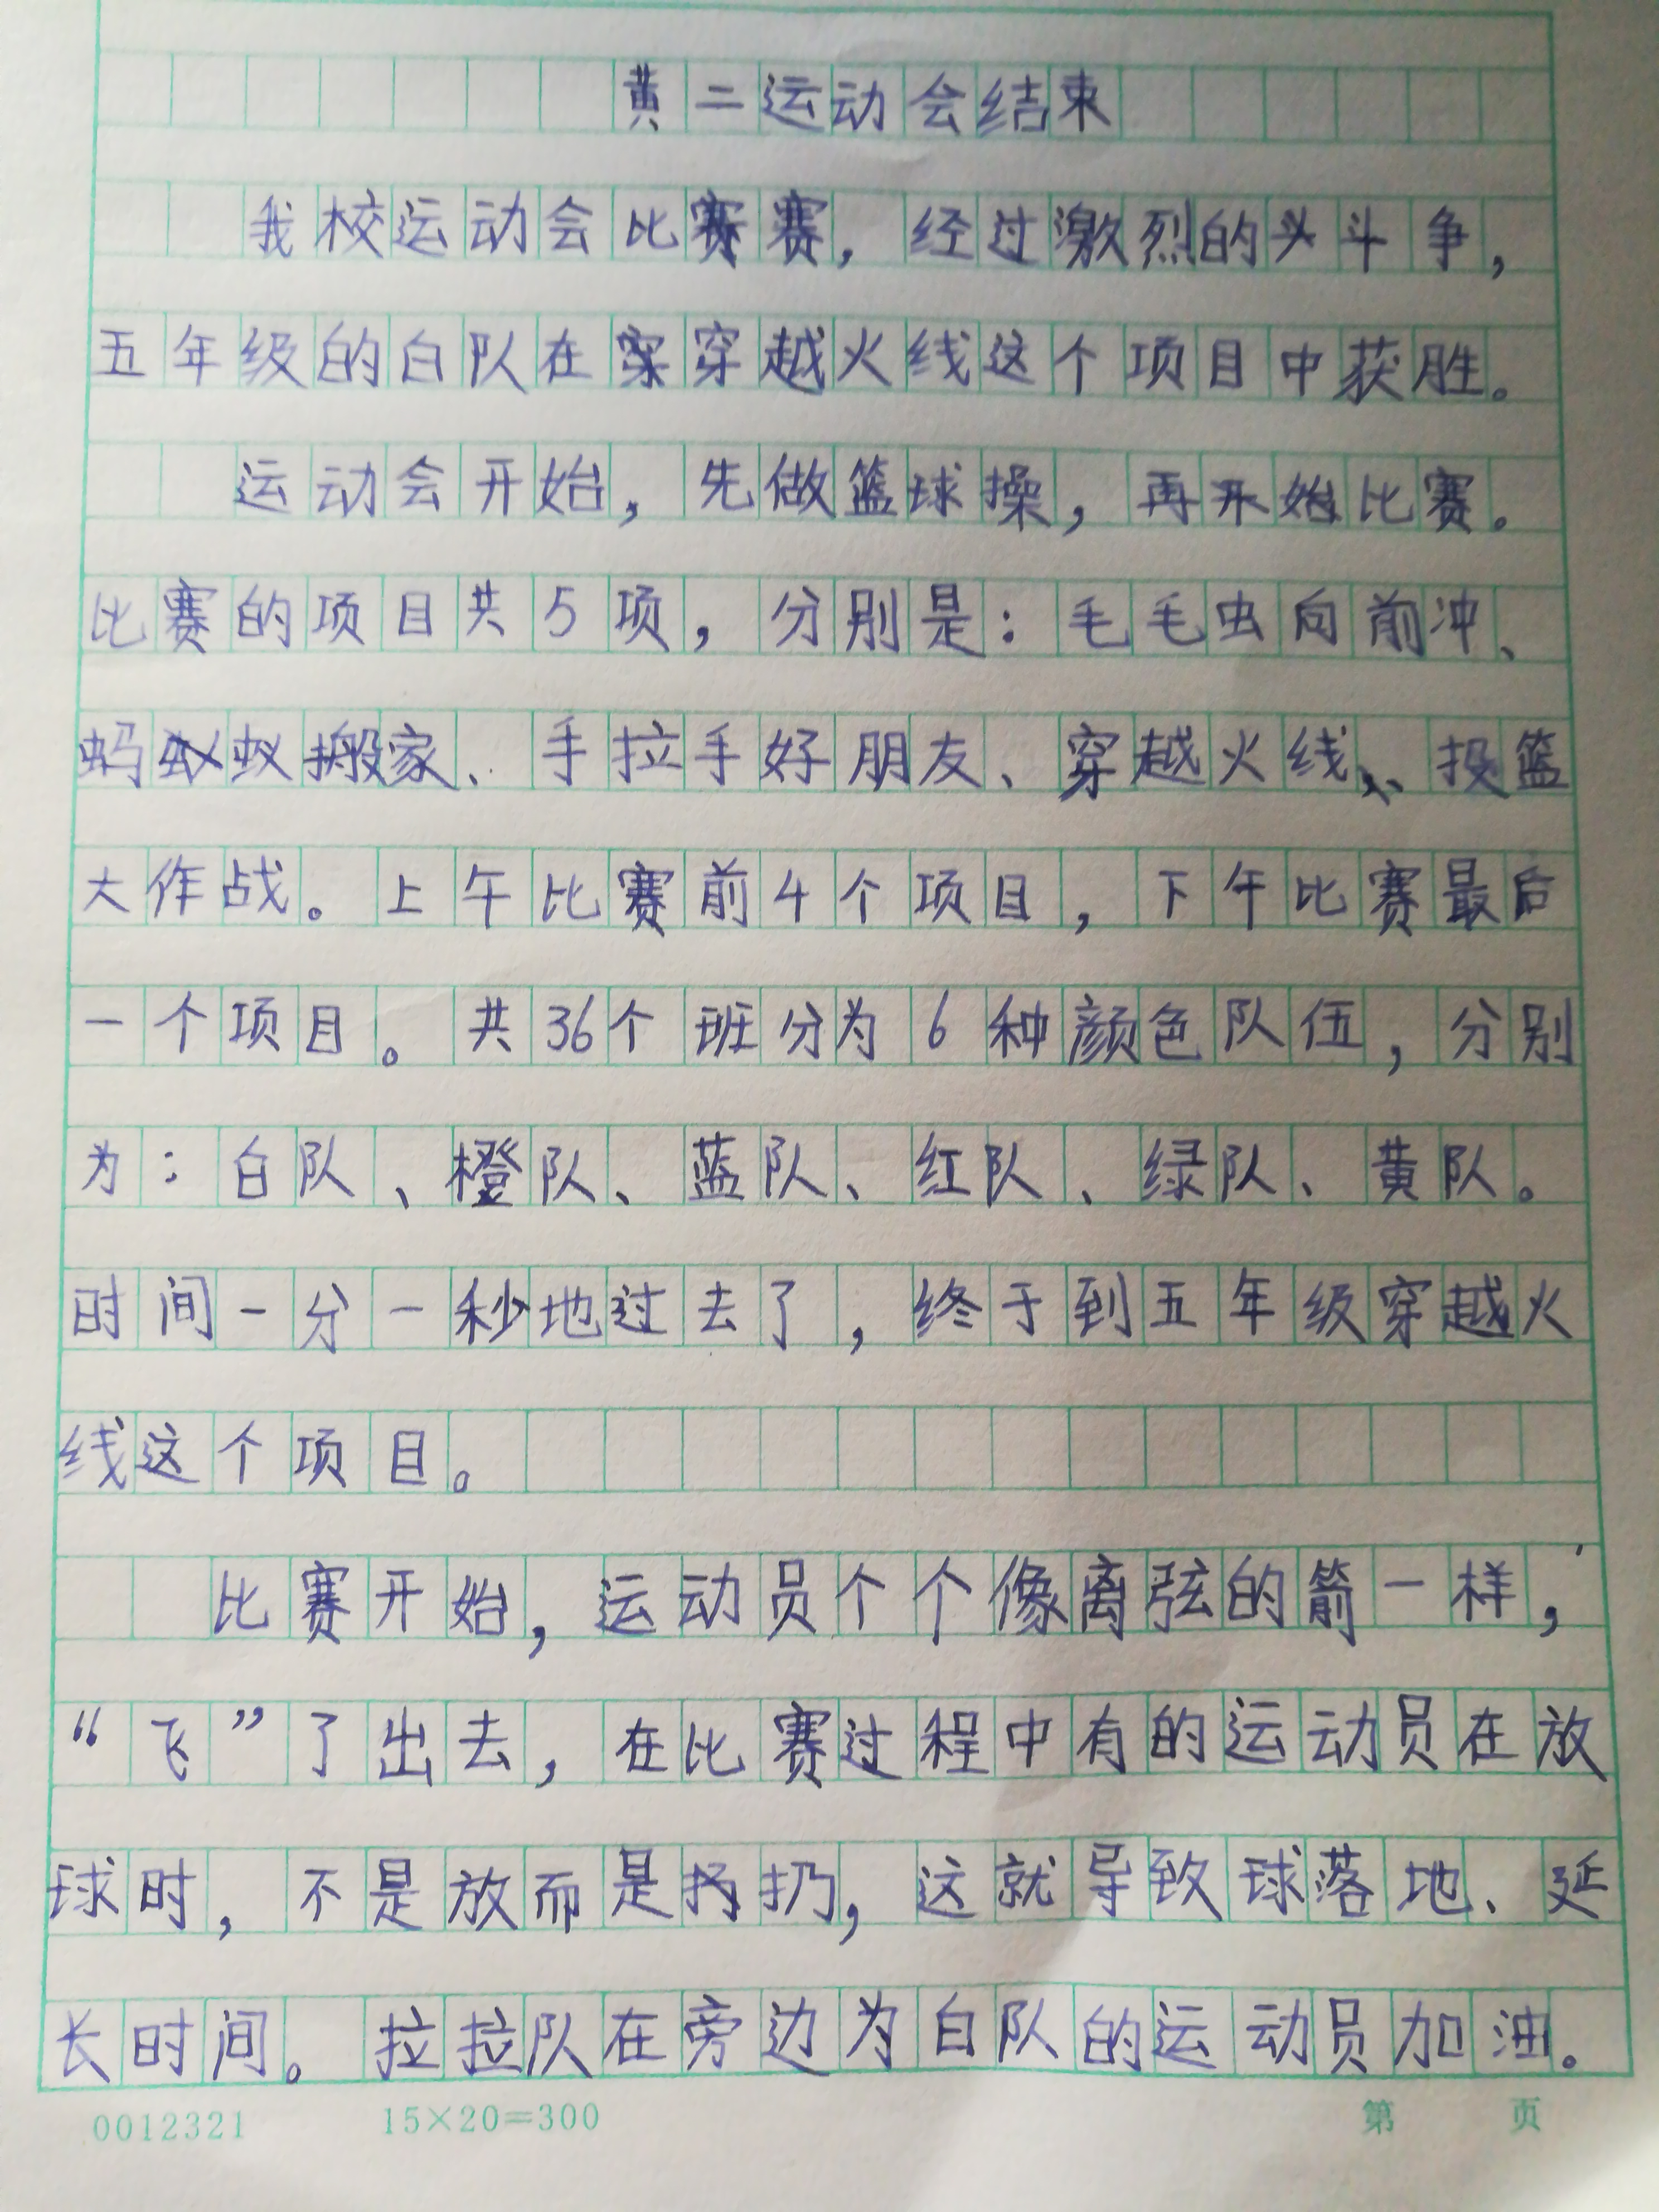 黄二运动会结束
我校运动会比赛,经过激烈的斗争,
五年级的白队在穿越火线这个项目中获胜。
运动会开始,先做篮球操,再开始比赛。
比赛的项目共5项,分别是:毛毛虫向前冲、
蚂蚁搬家、手拉手好朋友、穿越火线、投篮
大作战。上午比赛前4个项目,下午比赛最后
一个项目。共36个班分为6种颜色队伍,分别
为:白队、橙队、蓝队、红队、绿队、黄队。
时间一分一秒地过去了,终于到五年级穿越火
线这个项目。
比赛开始,运动员个个像离弦的箭一样,
“飞”了出去,在比赛过程中有的运动员在放
球时,不是放而是扔,这就导致球落地、延
长时间。拉拉队在旁边为白队的运动员加油。
0012321 15×20=300 第 页